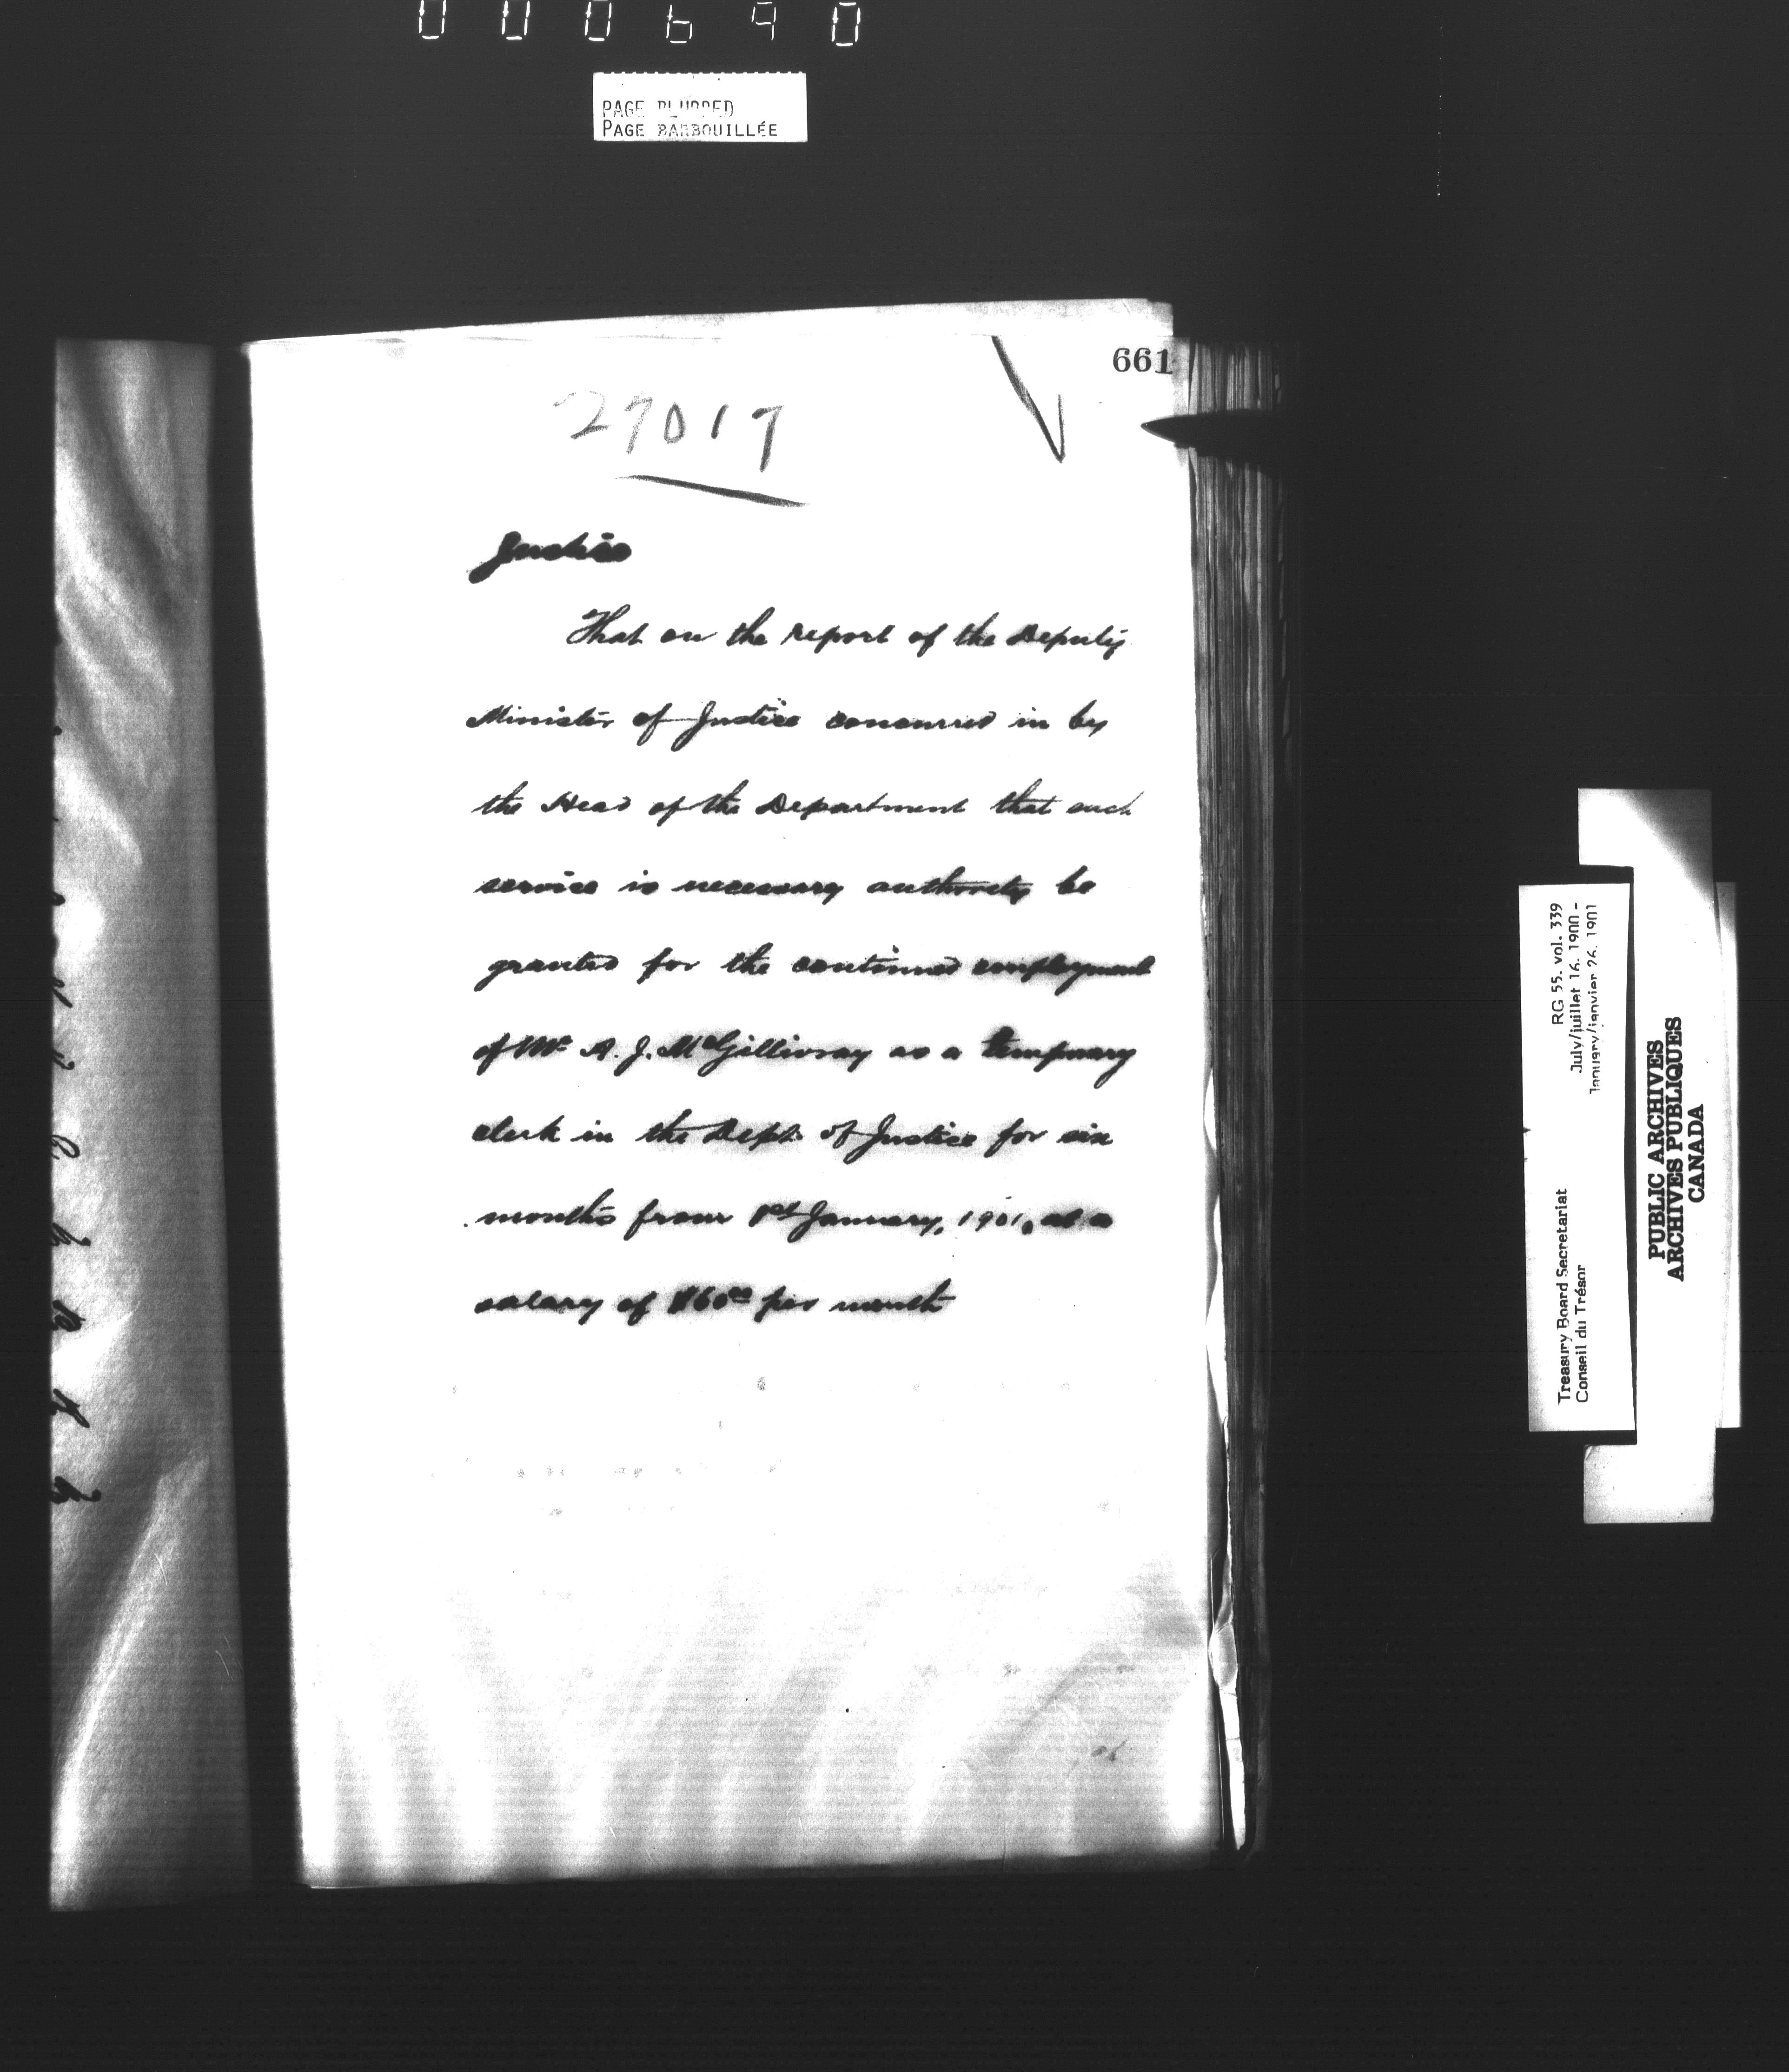 000690
PAGE BLURRED
PAGE BARBOUILLÉE
661
27017
Justice
That on the report of the Deputy
Minister of Justice concurred in by
the Head of the Department that such
service is necessary authority be
granted for the continued employment
of Mr A. J. McGillivray as a temporary
clerk in the Dept. of Justice for six
months from 1st January, 1901, at a
salary of $60.00 per month
Treasury Board Secretariat RG 55. vol. 339
Conseil du Trésor July/juillet 16. 1900 -
January/janvier 26. 1901
PUBLIC ARCHIVES
ARCHIVES PUBLIQUES
CANADA